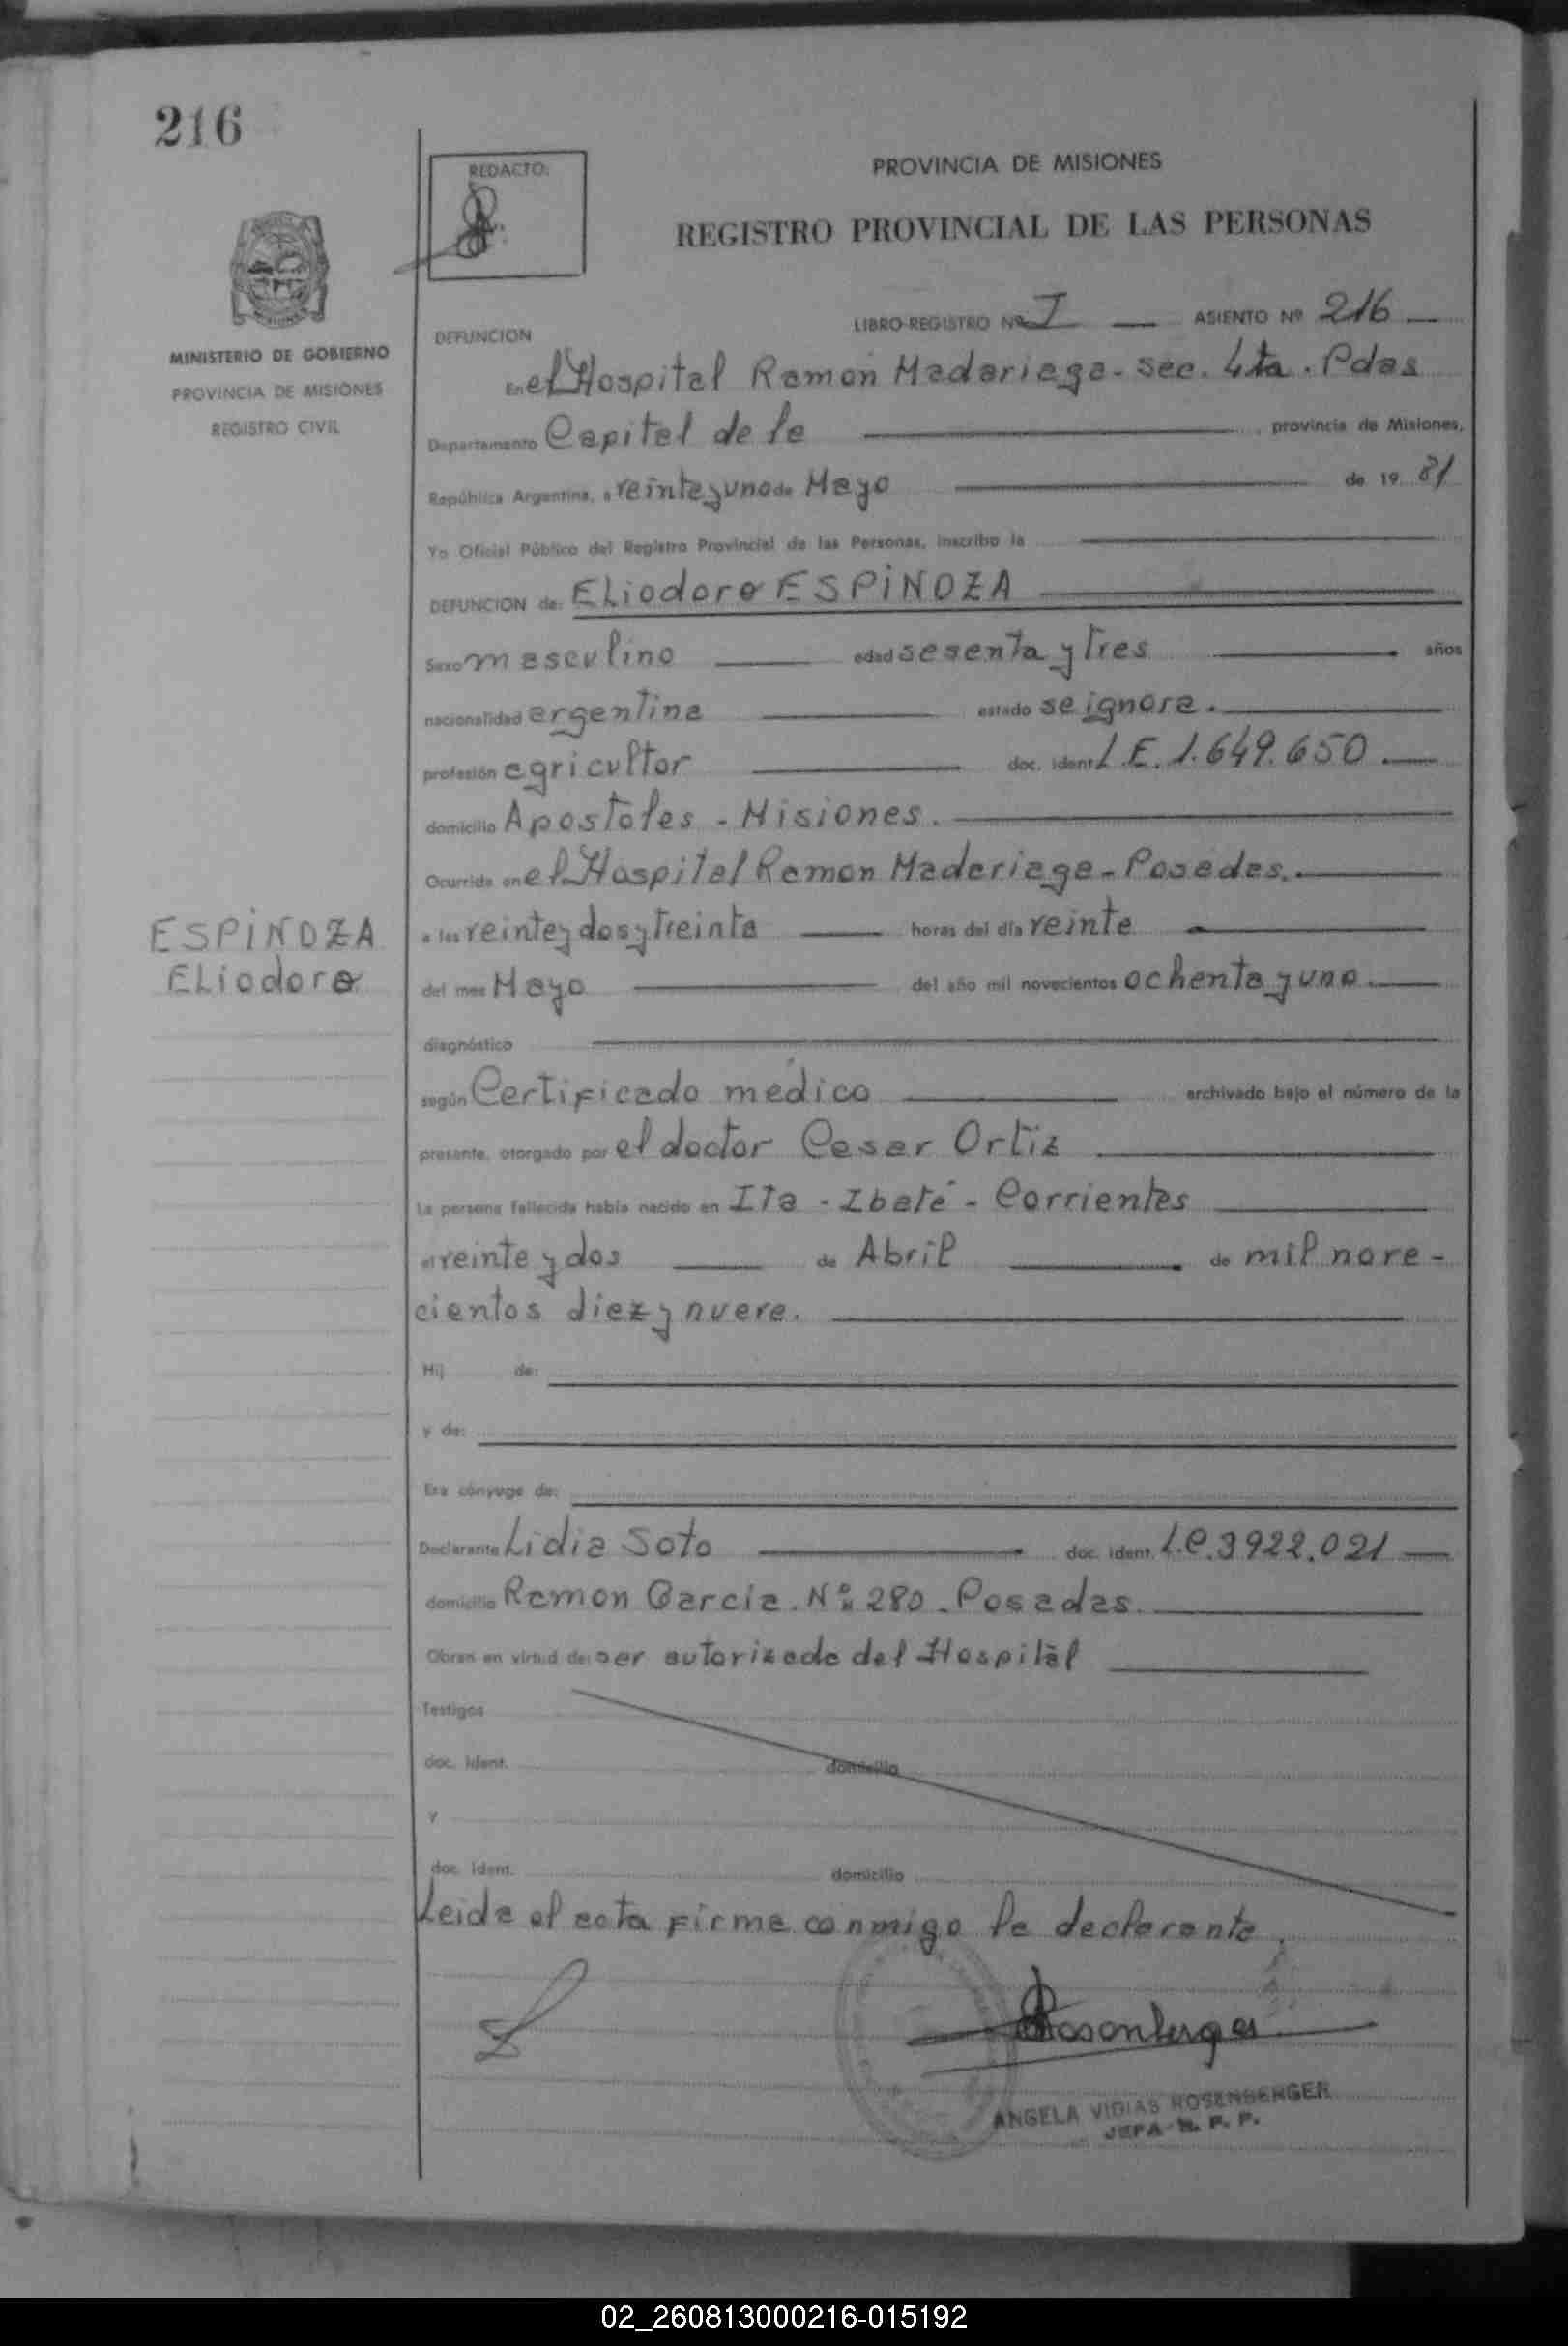 216
REDACTO:
PROVINCIA DE MISIONES
REGISTRO PROVINCIAL DE LAS PERSONAS
MINISTERIO DE GOBIERNO
PROVINCIA DE MISIONES
REGISTRO CIVIL
DEFUNCION LIBRO-REGISTRO Nº I ASIENTO Nº 216
En el Hospital Ramon Madariaga - Sec. 4ta. Pdas
Departamento Capital de la provincia de Misiones,
República Argentina, a veinte y uno de Mayo de 19 81
Yo Oficial Público del Registro Provincial de las Personas, inscribo la
DEFUNCION de: ELiodoro ESPINOZA
Sexo masculino edad sesenta y tres años
nacionalidad argentina estado se ignora.
profesión agricultor doc. ident L.E. 1.649.650
domicilio Apostoles - Misiones.
Ocurrida en el Hospital Ramon Madariaga - Posadas.
ESPINOZA
ELiodoro
a las veinte y dos y treinta horas del día veinte
del mes Mayo del año mil novecientos ochenta y uno
diagnóstico
según Certificado médico archivado bajo el número de la
presente, otorgado por el doctor Cesar Ortiz
La persona fallecida había nacido en Ita - Ibaté - Corrientes
el veinte y dos de Abril de mil nove-
cientos diez y nueve.
Hij de:
y de:
Era cónyuge de:
Declarante Lidia Soto doc. ident. L.C. 3922.021
domicilio Ramon Garcia. Nº 280. Posadas.
Obran en virtud de: ser autorizada del Hospital
Testigos
doc. ident. domicilio
y
doc. ident. domicilio
Leida el acta firma conmigo la declarante
Rosenberger
ANGELA VIDIAS ROSENBERGER
JEFA R. P. P.
02_260813000216-015192